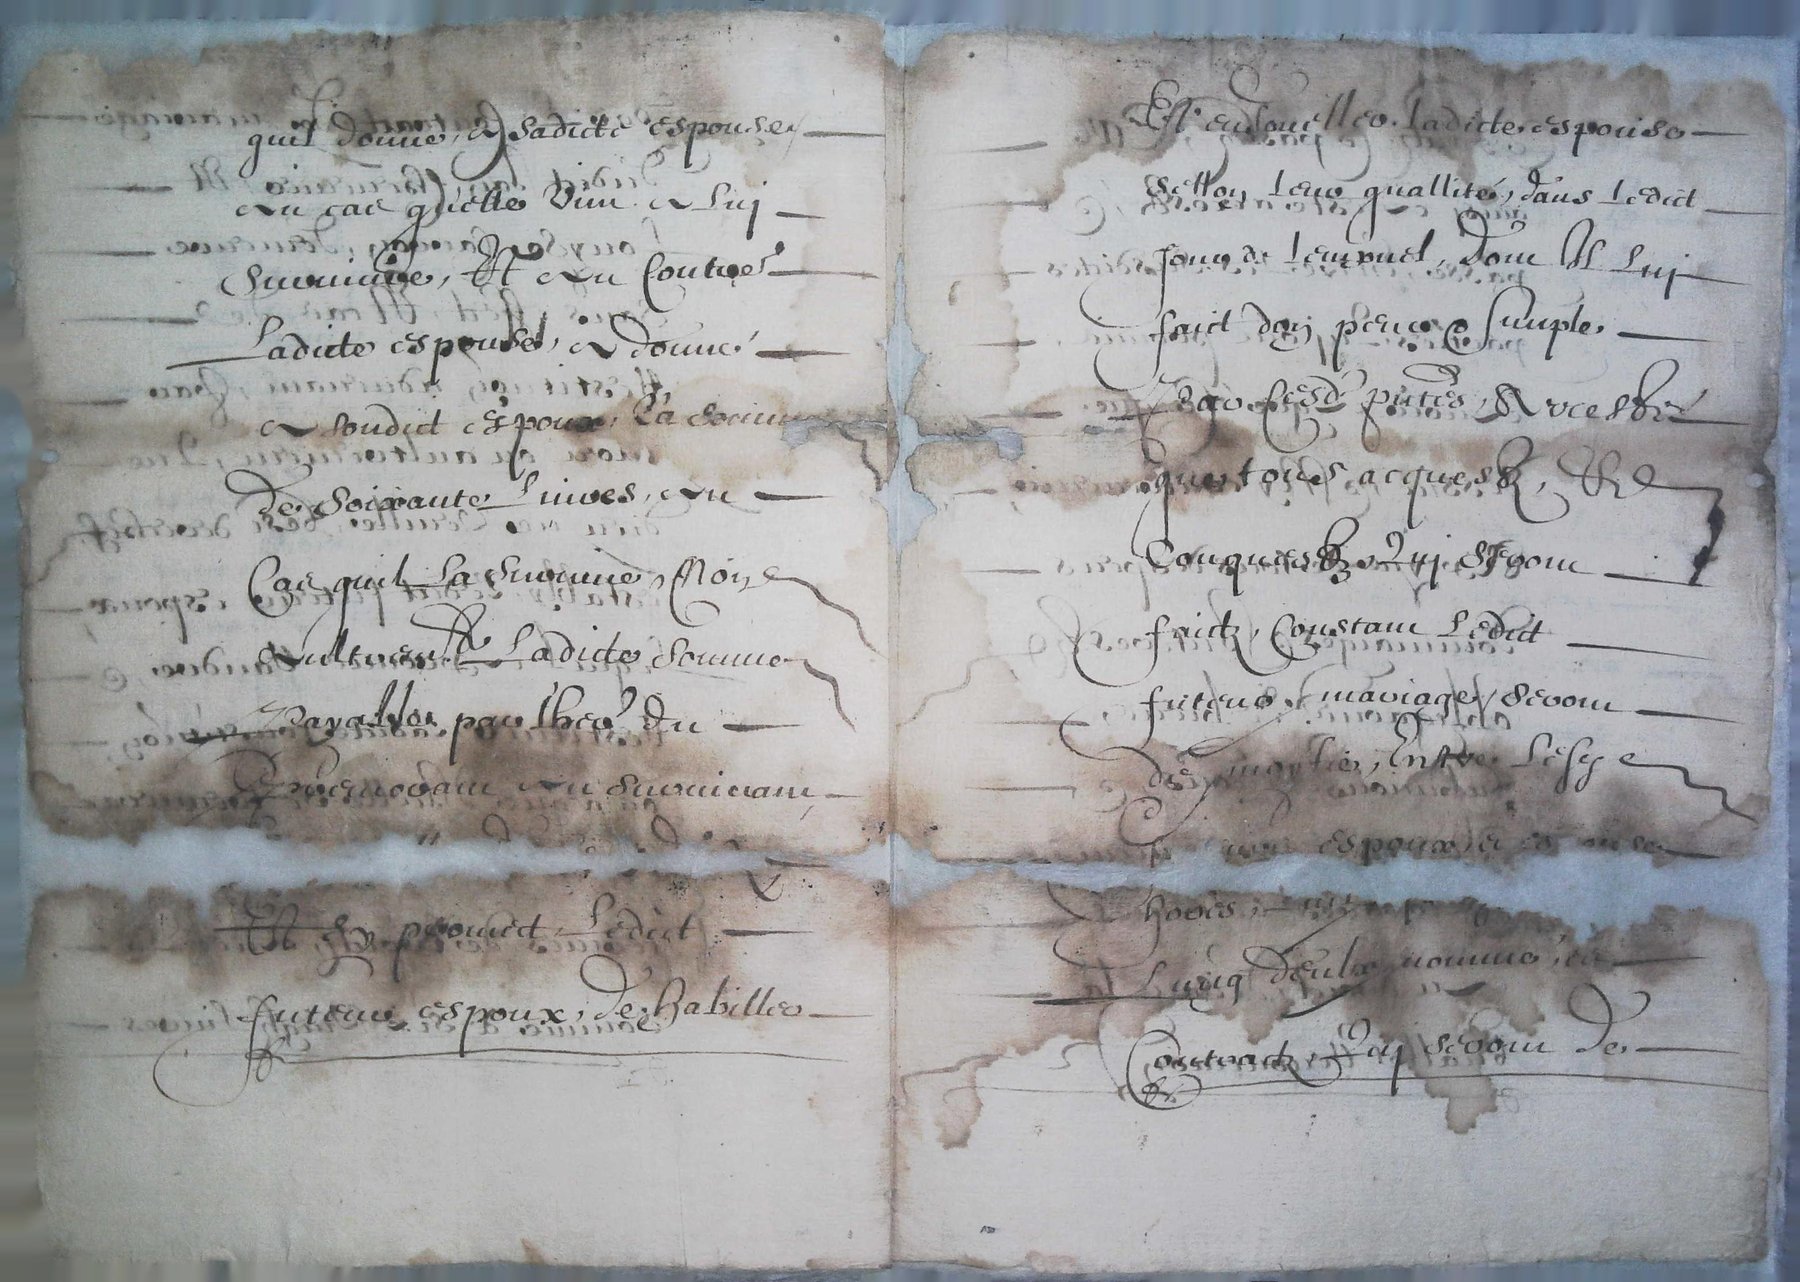 quil donne, A sadicte espouse,
Au cas quelle vint A luy
Survivre, Et Au Contre
Ladicte espouse, A donné
A sondict espoux, La somme
De soixante Livres, Au
Cas quil La survive, Non
Aultrement Ladicte somme
Payables par lher du
Au survivant,
Et sy promect Ledict
futeur espoux, de habiller
Et enjoueller Ladicte espouse
Sellon leur quallité, dans Ledict
jour de lempuel, Dont Il Luy
faict don pur & simple
Par Cesd. pntes, Avecsk
que tous acquestz, Et
Conquestz Qui Seront
faictz, Constant Ledict
futeur mariage, seront
de moytié, Entre Lesd
espoux et
hoers,
Lung deulx nomme, en
Contractz, Qui seront De